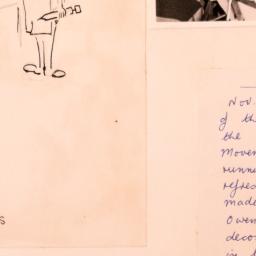 Nov.
of th
the
Movem
runne
refres
made
Owen
deco
in
s